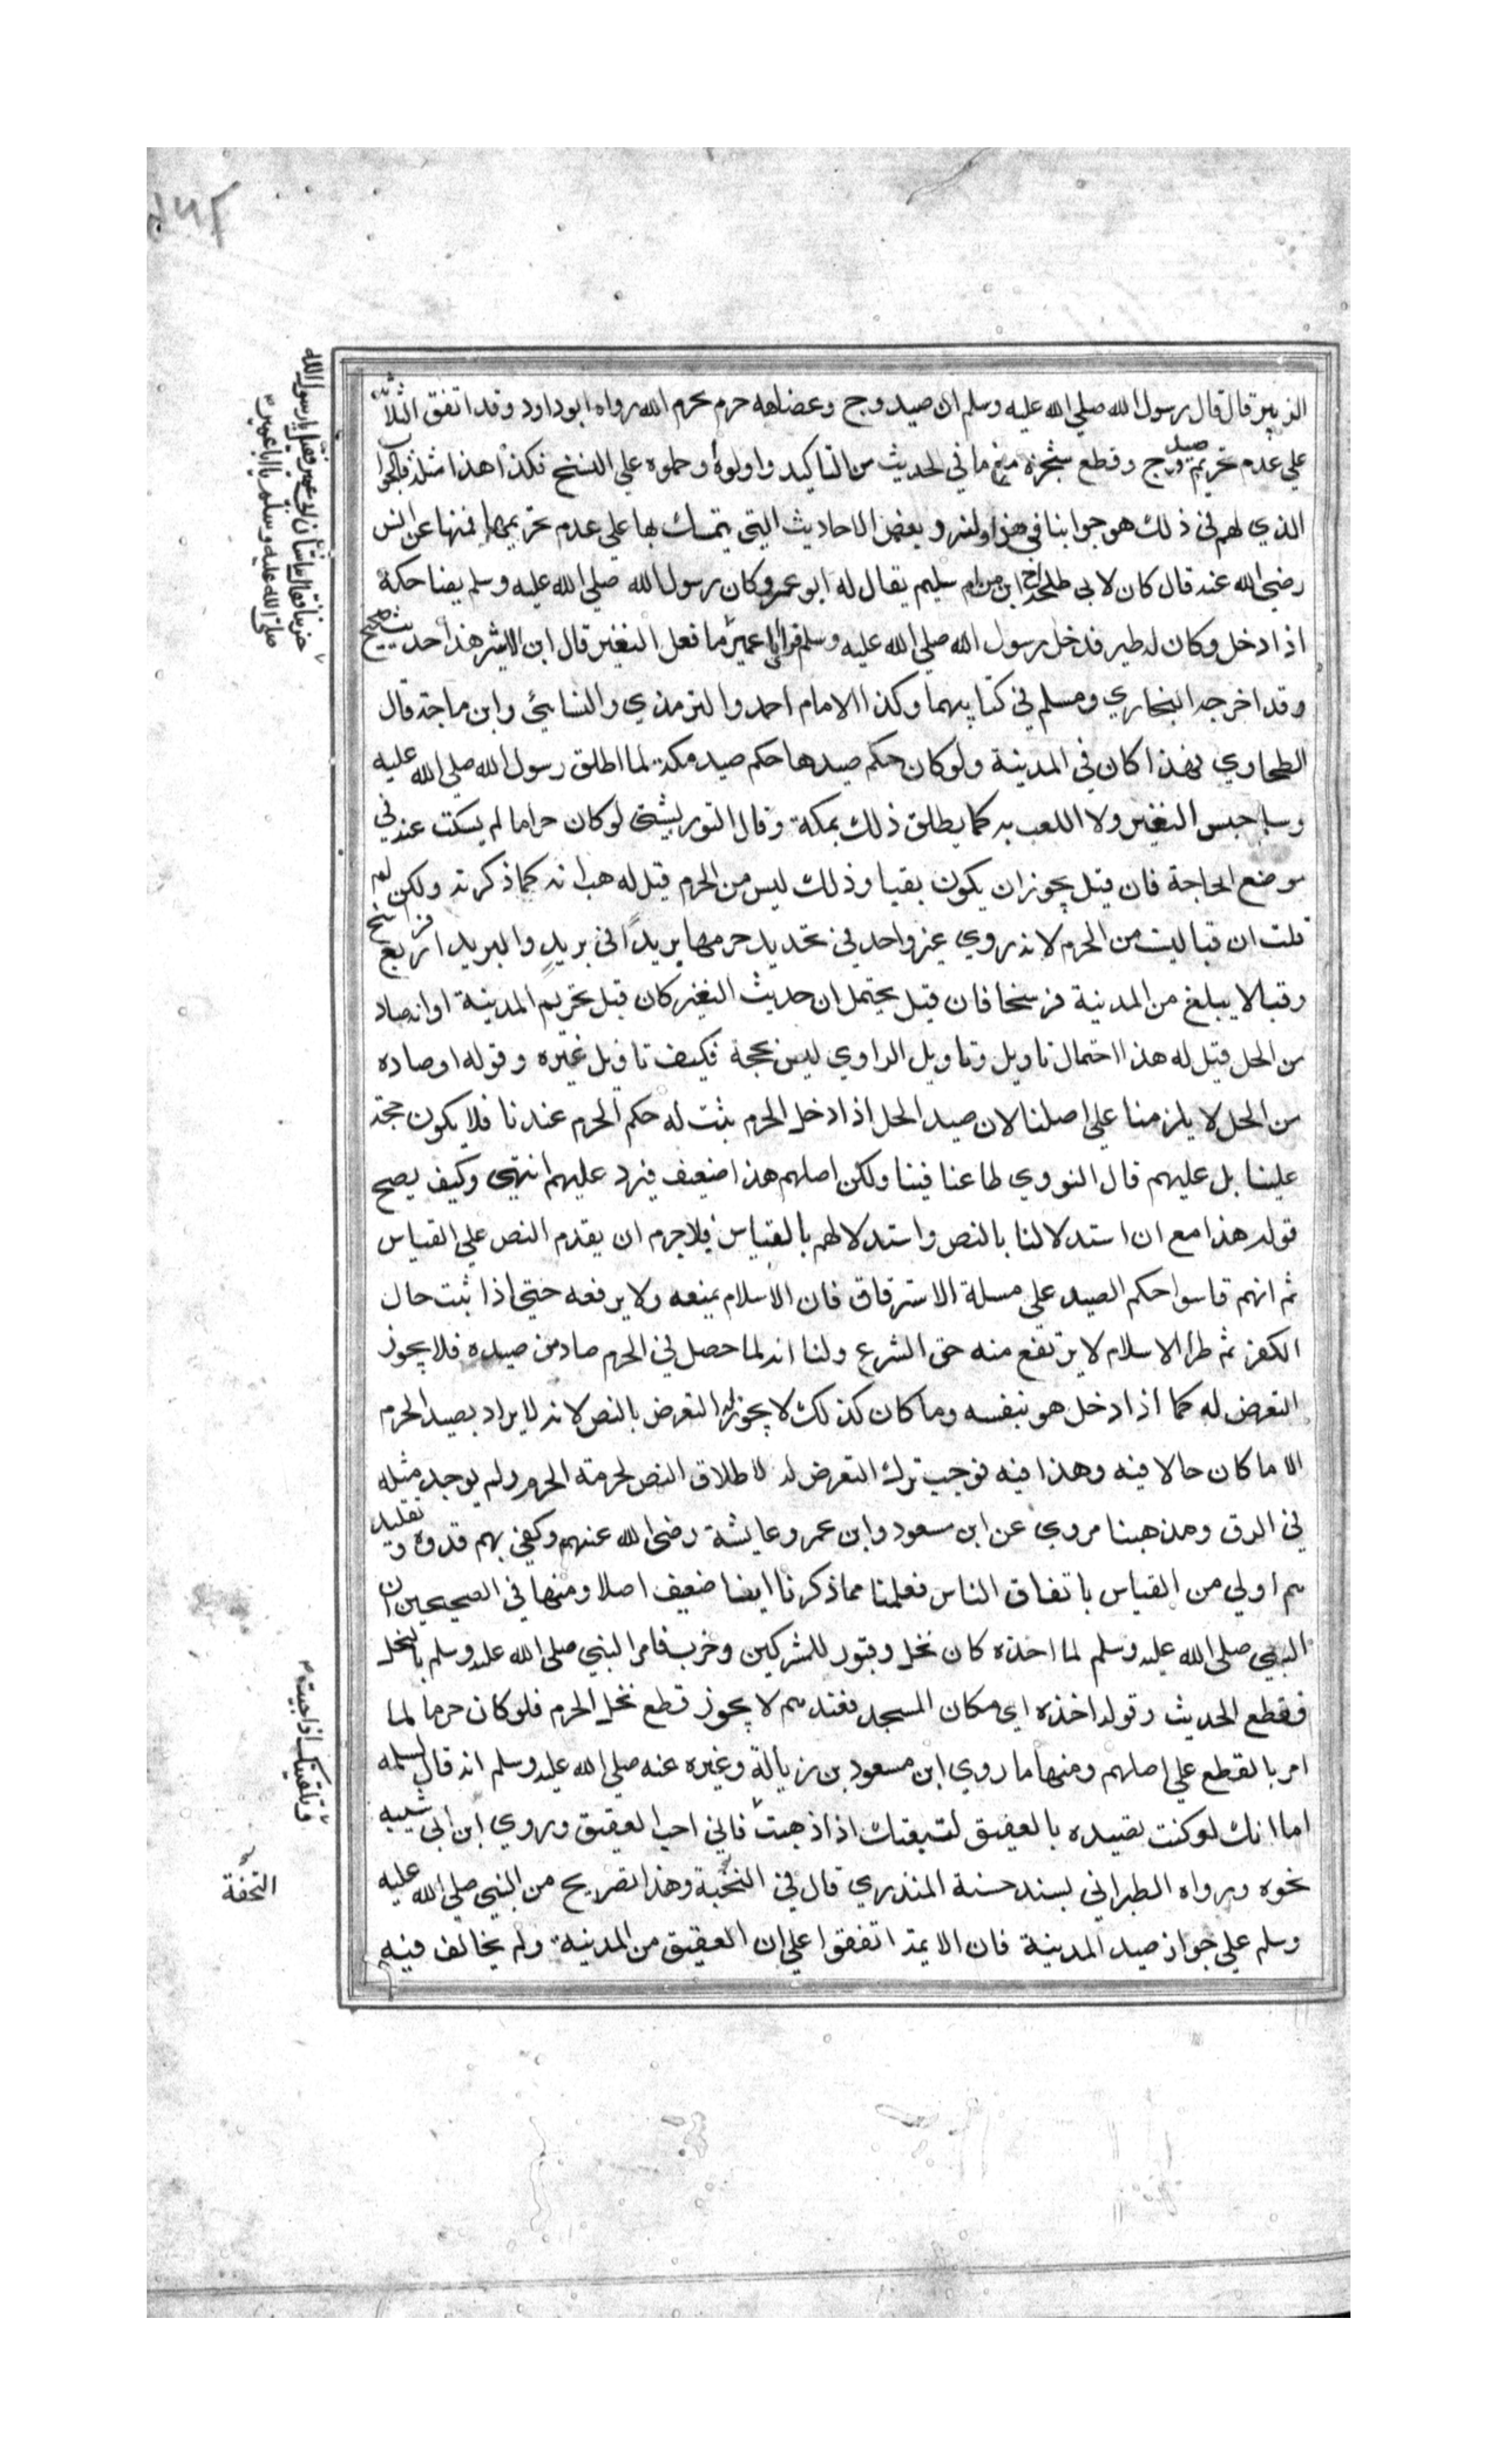 الزبير قال قال رسول الله صلي الله عليه وسلم ان صيد وج وعضاهه حرم محرم الله رواه ابو داود وقد اتفق الثلاثة
علي عدم تحريم صيد وج وقطع شجره مع ما في الحديث من التاكيد واولوه او حملوه علي النسخ فكذا هذا مثله فالجواب
الذي لهم في ذلك هو جوابنا في هذا ولنرو بعض الاحاديث التي يتمسك بها علي عدم تحريمها فمنها عن انس
رضي الله عنه قال كان لابي طلحة ابن من ام سليم يقال له ابو عمير وكان رسول الله صلي الله عليه وسلم يضاحكه
اذا دخل وكان له طير فدخل رسول الله صلي الله عليه وسلم فراي ابا عمير ما فعل النغير قال ابن الاثير هذا حديث صحيح
وقد اخرجه البخاري ومسلم في كتابيهما وكذا الامام احمد والترمذي والنسائي وابن ماجة قال
الطحاوي فهذا كان في المدينة ولو كان حكم صيدها حكم صيد مكة لما اطلق رسول الله صلي الله عليه
وسلم حبس النغير ولا اللعب به كما يطلق ذلك بمكة وقال التوربشتي لو كان حراما لم يسكت عنه في
موضع الحاجة فان قيل يجوز ان يكون بقبا وذلك ليس من الحرم قيل له هب انه كما ذكرته ولكن لم
قلت ان قبا ليت من الحرم لانه روي غير واحد في تحديد حرمها بريدا في بريد والبريد اربع فراسخ
وقبا لا يبلغ من المدينة فرسخا فان قيل يحتمل ان حديث النغير كان قبل تحريم المدينة او انه صاد
من الحل قيل له هذا احتمال تاويل وتاويل الراوي ليس بحجة فكيف تاويل غيره وقوله او صاده
من الحل لا يلزمنا علي اصلنا لان صيد الحل اذا دخل الحرم يثبت له حكم الحرم عندنا فلا يكون حجة
علينا بل عليهم قال النووي طاعنا فينا ولكن اصلهم هذا ضعيف فيرد عليهم انتهي وكيف يصح
قوله هذا مع ان استدلالنا بالنص واستدلالهم بالقياس فلا جرم ان يقدم النص علي القياس
ثم انهم قاسوا حكم الصيد علي مسلة الاسترقاق فان الاسلام يمنعه ولا يرفعه حتي اذا ثبت حال
الكفر ثم طرا الاسلام لا يرتفع منه حق الشرع ولنا انه لما حصل في الحرم صار من صيده فلا يجوز
التعرض له كما اذا دخل هو بنفسه وما كان كذلك لا يجوز له التعرض بالنص لانه لا يراد بصيد الحرم
الا ما كان حالا فيه وهذا فيه فوجب ترك التعرض له لاطلاق النص لحرمة الحرم ولم يوجد مثله
في الرق ومذهبنا مروي عن ابن مسعود وابن عمر وعايشة رضي الله عنهم وكفي بهم قدوة وتقليد
هم اولي من القياس باتفاق الناس فعلمنا مما ذكرنا ايضا ضعيف اصلا ومنها في الصحيحين ان
النبي صلي الله عليه وسلم لما اخذه كان نخل وقبور للمشركين وخرب فامر النبي صلي الله عليه وسلم بالنخل
فقطع الحديث وقوله اخذه اي مكان المسجد فعندهم لا يجوز قطع نخل الحرم فلو كان حرما لما
امر بالقطع علي اصلهم ومنها ما روي ابن مسعود بن زبالة وغيره عنه صلي الله عليه وسلم انه قال لسلمه
اما انك لو كنت تصيده بالعقيق لشيعتك اذا ذهبت فاني احب العقيق وروي ابن ابي شيبه
نحوه ورواه الطبراني بسند حسنه المنذري قال في النخبة وهذا تصريح من النبي صلي الله عليه
وسلم علي جواز صيد المدينة فان الايمة اتفقوا علي ان العقيق من المدينة ولم يخالف فيه
حزينا فقال ما شان ابي عمير فقيل يا رسول الله
صلي الله عليه وسلم يا ابا عمير
وتلقيتك اذا جيت
التحفة